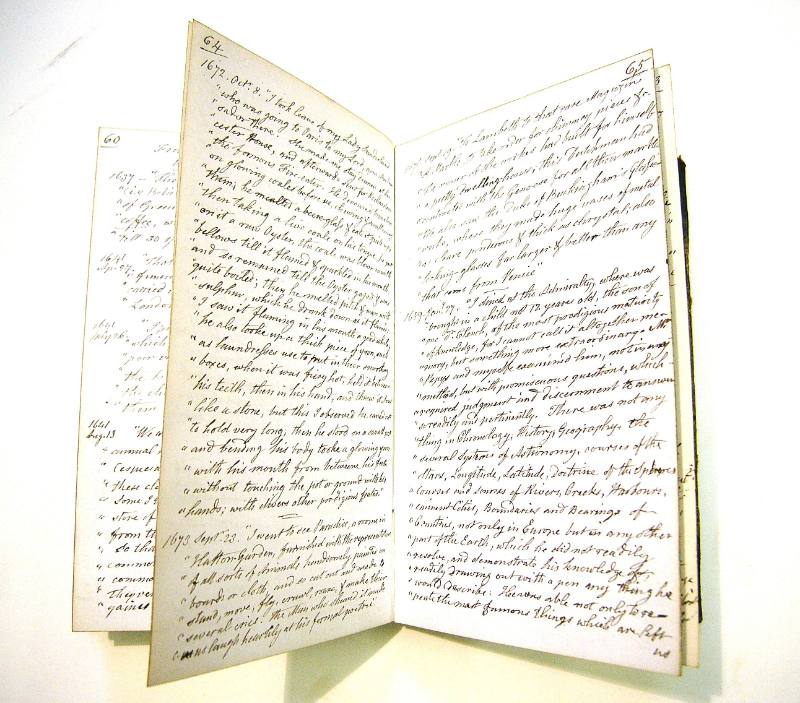 60
1637 –
of Gree
coffee, w
till 30 y
1641
carried
London
1641
which
the b
the cli
them
1641
"We w
annual
these cl
some I
store of
from th
so tha
commo
comma
They ve
gaines
64
1672. Octr. 8. "I took leave of my Lady Sunderland
"who was going to Paris to my Lord, now Ambas
"sador there. She made me stay dinner at Lei
"cester House, and afterwards sent for Richardson
"the famous Fire-eater. He devoured brimstone
"on glowing coales before us, chewing and swallowing
"them; he melted a beere glasse & eat it quite up
"then taking a live coale on his tongue, he put
"on it a raw Oyster, the coale was blown with
"bellows till it flamed & sparkled in his mouth
"and so remained till the Oyster gaped & was
"quite boiled; then he melted pitch & wax with
"sulphur, which he drank down as it flamed;
"I saw it flaming in his mouth a good while;
"he also tooke up a thick piece of yron, such
"as laundresses use to put in their smoothing
"boxes, when it was firey hot, held it between
"his teeth, then in his hand, and threw it about
"like a stone, but this I observed he cared not
"to hold very long; then he stood on a small pot
"and bending his body tooke a glowing yron
"with his mouth from betweene his feete
"without touching the pot or ground with his
"hands; with divers other prodigious feates"
1673 Sept. 23. "I went to see Paradise, a room in
"Hatton Garden, furnished with the representations
"of all sorts of animals, handsomely painted on
"boards or cloth, and so cut out and made to
"stand, move, fly, crawl, roare, & make their
"several cries! The Man who shewed it made
"us laugh heartily at his formal poetrie"
65
Sept 19. "To Lambeth to that rare Magazine
"of Marble, to take order for chimney pieces &c.
"The owner of the works had built for himself
"a pretty dwelling house; this Dutchman had
"contracted with the Genoese for all their marble
"We also saw the Duke of Buckingham's Glasse
"worke, where they made huge vases of metal
"as cleare, ponderous & thick as chrystal; also
"looking-glasses far larger & better than any
"that come from Venice"
1679 Jany. 27. "I dined at the Admiralty, where was
"brought in a child not 12 years old, the son of
"one Dr. Clench, of the most prodigious maturity
"of knowledge, for I cannot call it altogether me-
"mory, but something more extraordinary. Mr
"Pepys and myselfe examined him, not in any
"method, but with promiscuous questions, which
"required judgment and discernment to answer
"so readily and pertinently. There was not any
"thing in Chronology, History, Geography, the
"several systems of Astronomy, courses of the
"Stars, Longitude, Latitude, Doctrine of the Spheres
"courses and sources of Rivers, Creeks, Harbours,
"eminent Cities, Boundaries and Bearings of
"Countries, not only in Europe but in any other
"part of the Earth, which he did not readily
"resolve, and demonstrate his knowledge of,
"readily drawing out with a pen any thing he
"would describe. He was able not only to re-
"peate the most famous things which are left
us